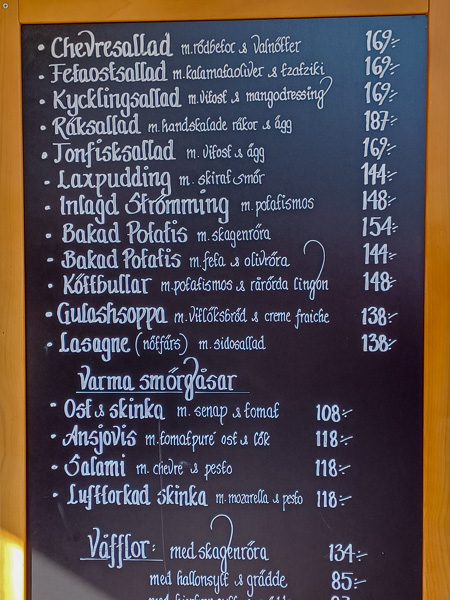 • Chevresallad m. rödbetor & valnötter 169:-
• Fetaostsallad m. kalamataoliver & tzatziki 169:-
• Kycklingsallad m. vitost & mangodressing 169:-
• Räksallad m. handskalade räkor & ägg 187:-
• Tonfisksallad m. vitost & ägg 169:-
• Laxpudding m. skirat smör 144:-
• Inlagd Strömming m. potatismos 148:-
• Bakad Potatis m. skagenröra 154:-
• Bakad Potatis m. feta & olivröra 144:-
• Köttbullar m. potatismos & rårörda lingon 148:-
• Gulashsoppa m. vitlöksbröd & creme fraiche 138:-
• Lasagne (nötfärs) m. sidosallad 138:-
Varma smörgåsar
• Ost & skinka m. senap & tomat 108:-
• Ansjovis m. tomatpuré ost & lök 118:-
• Salami m. chevré & pesto 118:-
• Luftt­orkad skinka m. mozarella & pesto 118:-
Våfflor: med skagenröra 134:-
med hallonsylt & grädde 85:-